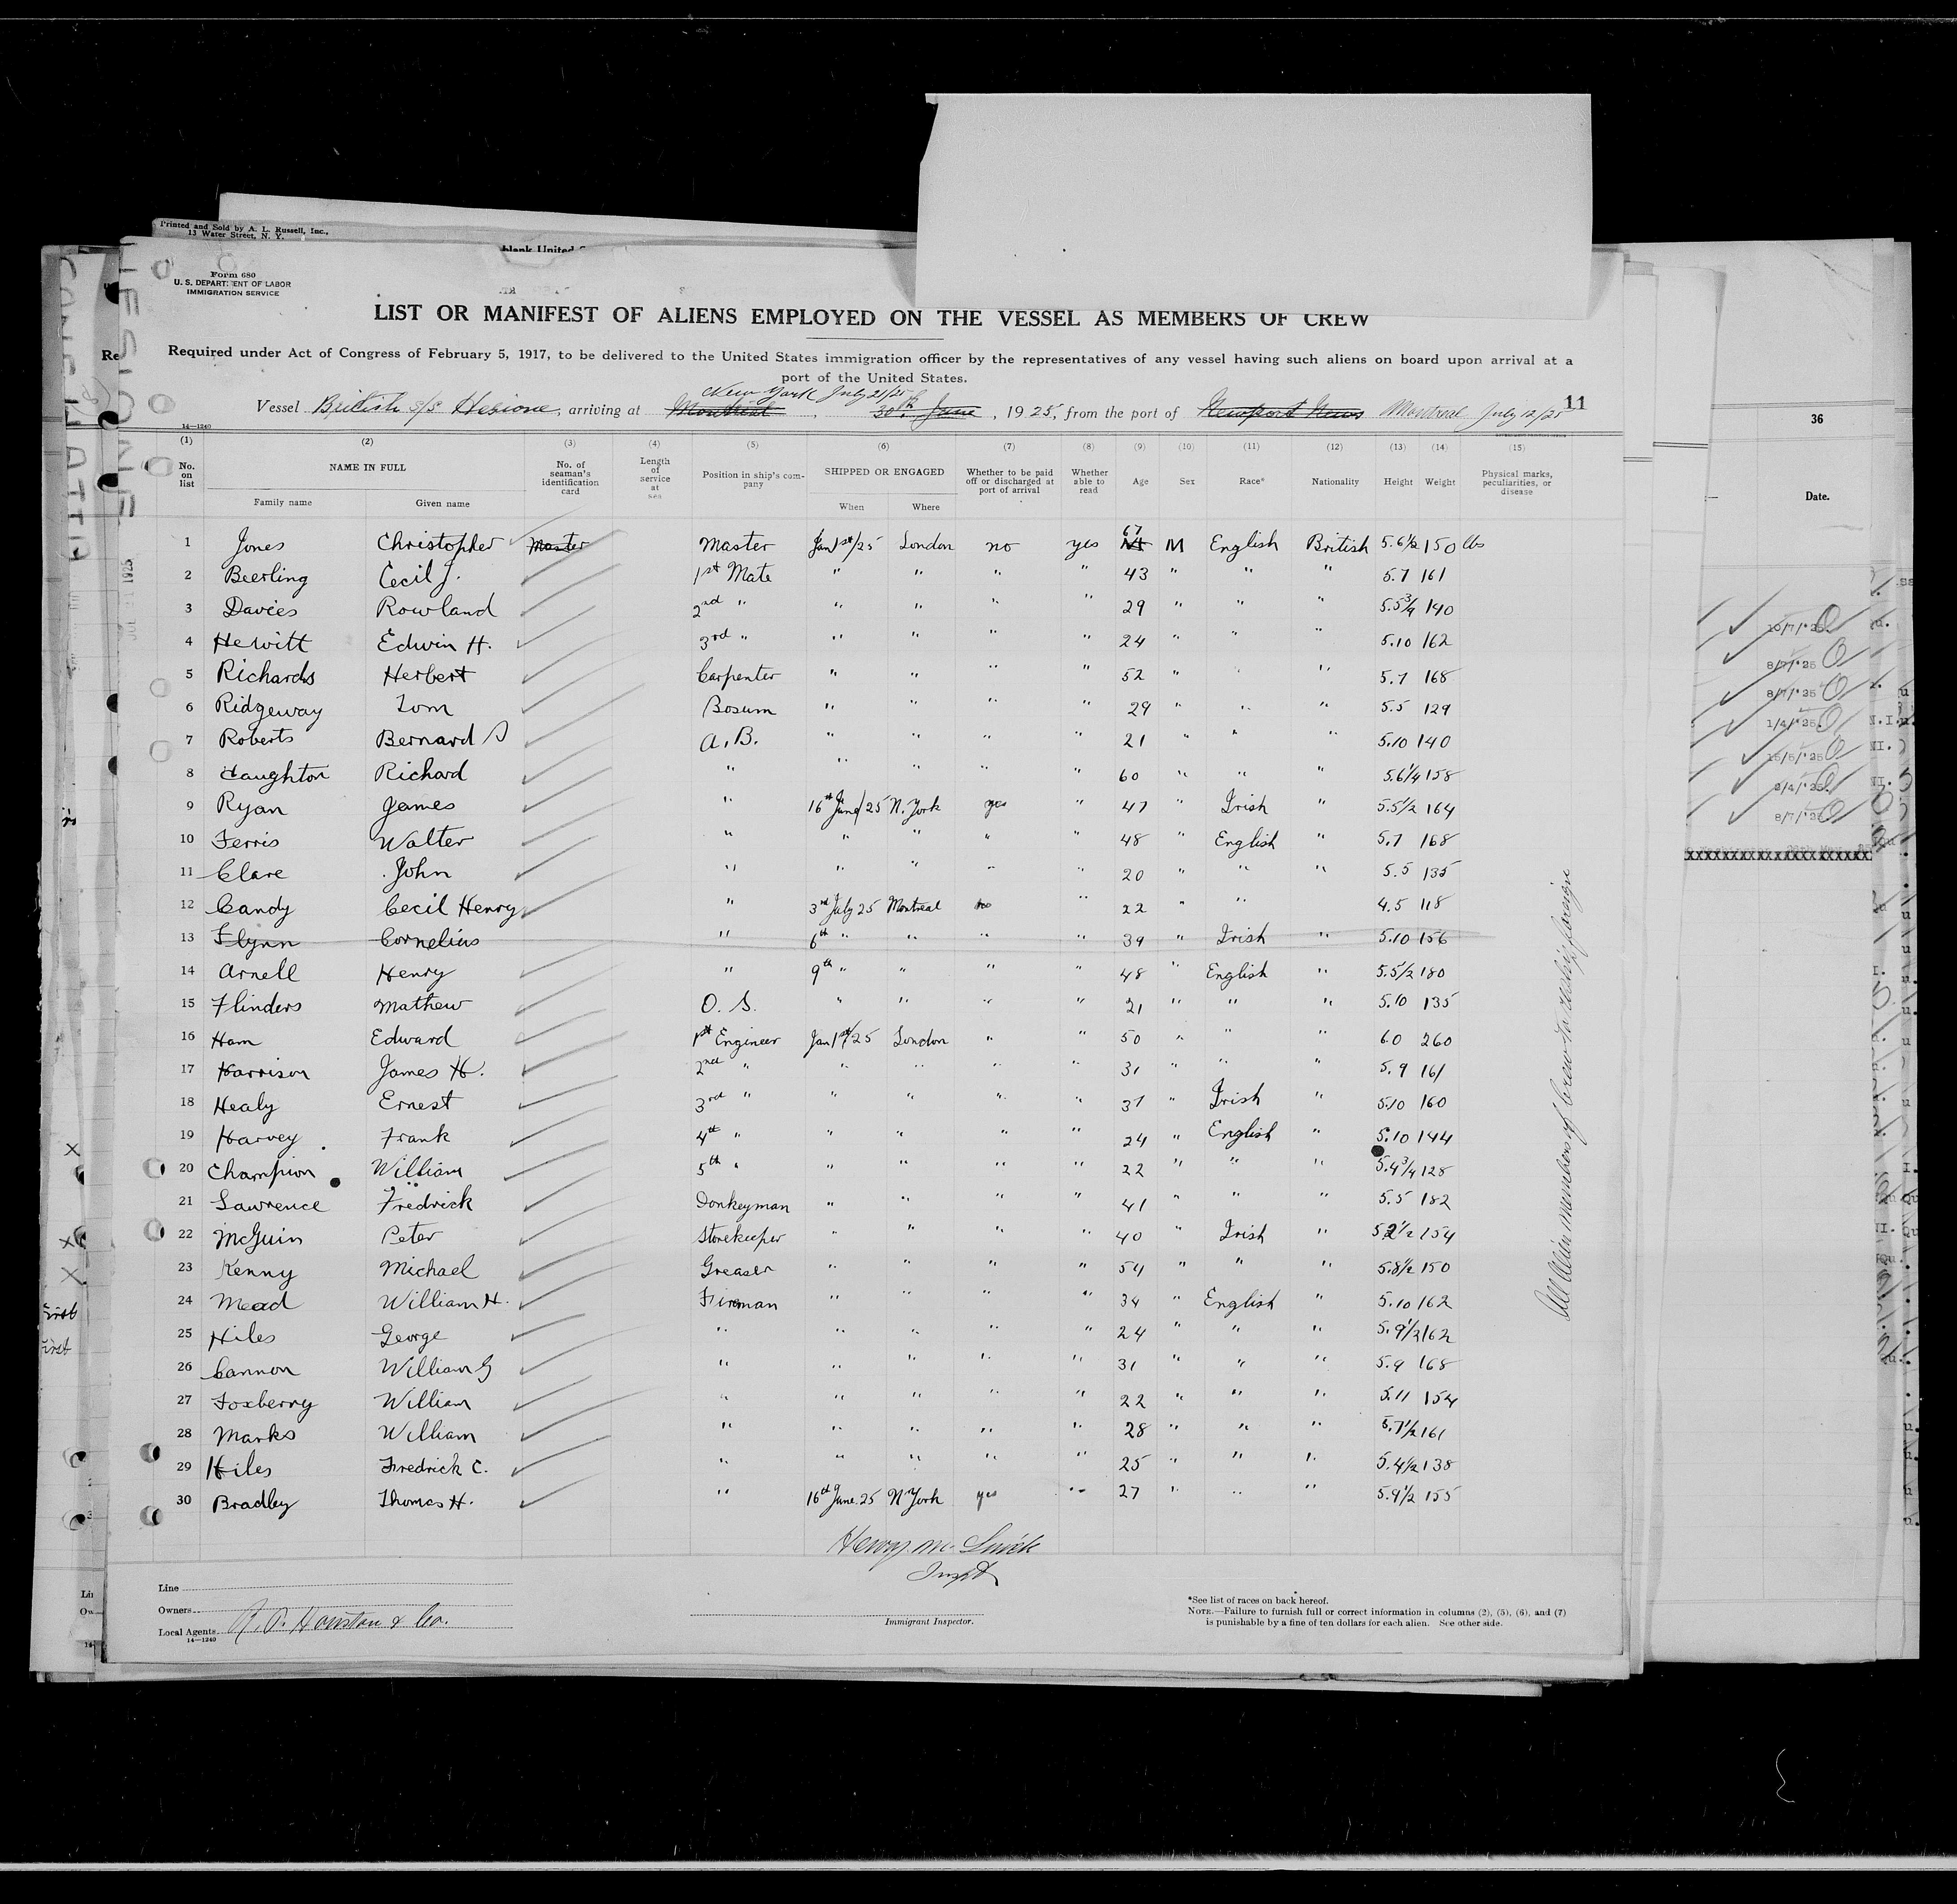 Printed and Sold by A. L. Russell, Inc.,
13 Water Street, N. Y.
blank United
Form 680
U. S. DEPARTMENT OF LABOR
IMMIGRATION SERVICE
LIST OR MANIFEST OF ALIENS EMPLOYED ON THE VESSEL AS MEMBERS OF CREW
Required under Act of Congress of February 5, 1917, to be delivered to the United States immigration officer by the representatives of any vessel having such aliens on board upon arrival at a
port of the United States.
New York July 21/25
Vessel British s/s Hesione, arriving at Montreal, 30th June, 1925, from the port of Newport News Montreal July 12/25
11
14—1240
(1) (2) (3) (4) (5) (6) (7) (8) (9) (10) (11) (12) (13) (14) (15)
No. on list NAME IN FULL Family name Given name No. of seaman's identification card Length of service at sea Position in ship's company SHIPPED OR ENGAGED When Where Whether to be paid off or discharged at port of arrival Whether able to read Age Sex Race* Nationality Height Weight Physical marks, peculiarities, or disease
1 Jones Christopher Master Master Jan 1st/25 London no yes 67 M English British 5.6 1/2 150 lbs
2 Beerling Cecil J. 1st Mate " " " " 43 " " " 5.7 161
3 Davies Rowland 2nd " " " " " 29 " " " 5.5 3/4 140
4 Hewitt Edwin H. 3rd " " " " " 24 " " " 5.10 162
5 Richards Herbert Carpenter " " " " 52 " " " 5.7 168
6 Ridgeway Tom Bosum " " " " 29 " " " 5.5 129
7 Roberts Bernard S A.B. " " " " 21 " " " 5.10 140
8 Haughton Richard " " " " " 60 " " " 5.6 1/4 158
9 Ryan James " 16th June/25 N. York yes " 47 " Irish " 5.5 1/2 164
10 Ferris Walter " " " " " 48 " English " 5.7 168
11 Clare John " " " " " 20 " " " 5.5 135
12 Candy Cecil Henry " 3rd July 25 Montreal no " 22 " " 4.5 118
13 Flynn Cornelius " 6th " " " " 39 " Irish " 5.10 156
14 Arnell Henry " 9th " " " " 48 " English " 5.5 1/2 180
15 Flinders Mathew O. S. " " " " 21 " " " 5.10 135
16 Ham Edward 1st Engineer Jan 1st/25 London " " 50 " " " 6.0 260
17 Harrison James H. 2nd " " " " " 31 " " " 5.9 161
18 Healy Ernest 3rd " " " " " 37 " Irish " 5.10 160
19 Harvey Frank 4th " " " " " 24 " English " 5.10 144
20 Champion William 5th " " " " " 22 " " " 5.4 3/4 128
21 Lawrence Fredrick Donkeyman " " " " 41 " " " 5.5 182
22 McGuin Peter Storekeeper " " " " 40 " Irish " 5.2 1/2 154
23 Kenny Michael Greaser " " " " 54 " " " 5.8 1/2 150
24 Mead William H. Fireman " " " " 34 " English " 5.10 162
25 Hiles George " " " " " 24 " " " 5.9 1/2 162
26 Cannon William G " " " " " 31 " " " 5.9 168
27 Foxberry William " " " " " 22 " " " 5.11 154
28 Marks William " " " " " 28 " " " 5.7 1/2 161
29 Hiles Fredrick C. " " " " " 25 " " " 5.4 1/2 138
30 Bradley Thomas H. " 16th June. 25 N York yes " 27 " " " 5.9 1/2 155
All Alien members of Crew to reship foreign
Line
Owners
Local Agents R. P. Houston & Co.
14—1240
Immigrant Inspector.
*See list of races on back hereof.
NOTE.—Failure to furnish full or correct information in columns (2), (5), (6), and (7)
is punishable by a fine of ten dollars for each alien. See other side.
36
Date.
10/7/'25.
8/7/'25
8/7/'25
1/4/'25
15/5/'25
2/4/'25
8/7/'25